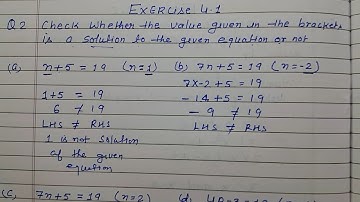 EXERCISE 4.1
Q2 Check whether the value given in the brackets
is a solution to the given equation or not
(a) n+5 = 19 (n=1) (b) 7n+5 = 19 (n=-2)
7x-2+5 = 19
1+5 = 19 -14+5 = 19
6 ≠ 19 -9 ≠ 19
LHS ≠ RHS LHS ≠ RHS
1 is not solution
of the given
equation
(C) 7n+5 = 19 (n=2) (d)